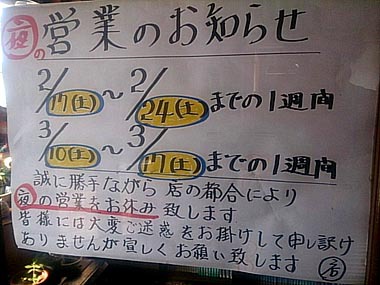 夜の営業のお知らせ
2/17(土)～2/24(土)までの1週間
3/10(土)～3/17(土)までの1週間
誠に勝手ながら店の都合により
夜の営業をお休み致します
皆様には大変ご迷惑をお掛けして申し訳け
ありませんが宜しくお願い致します 店